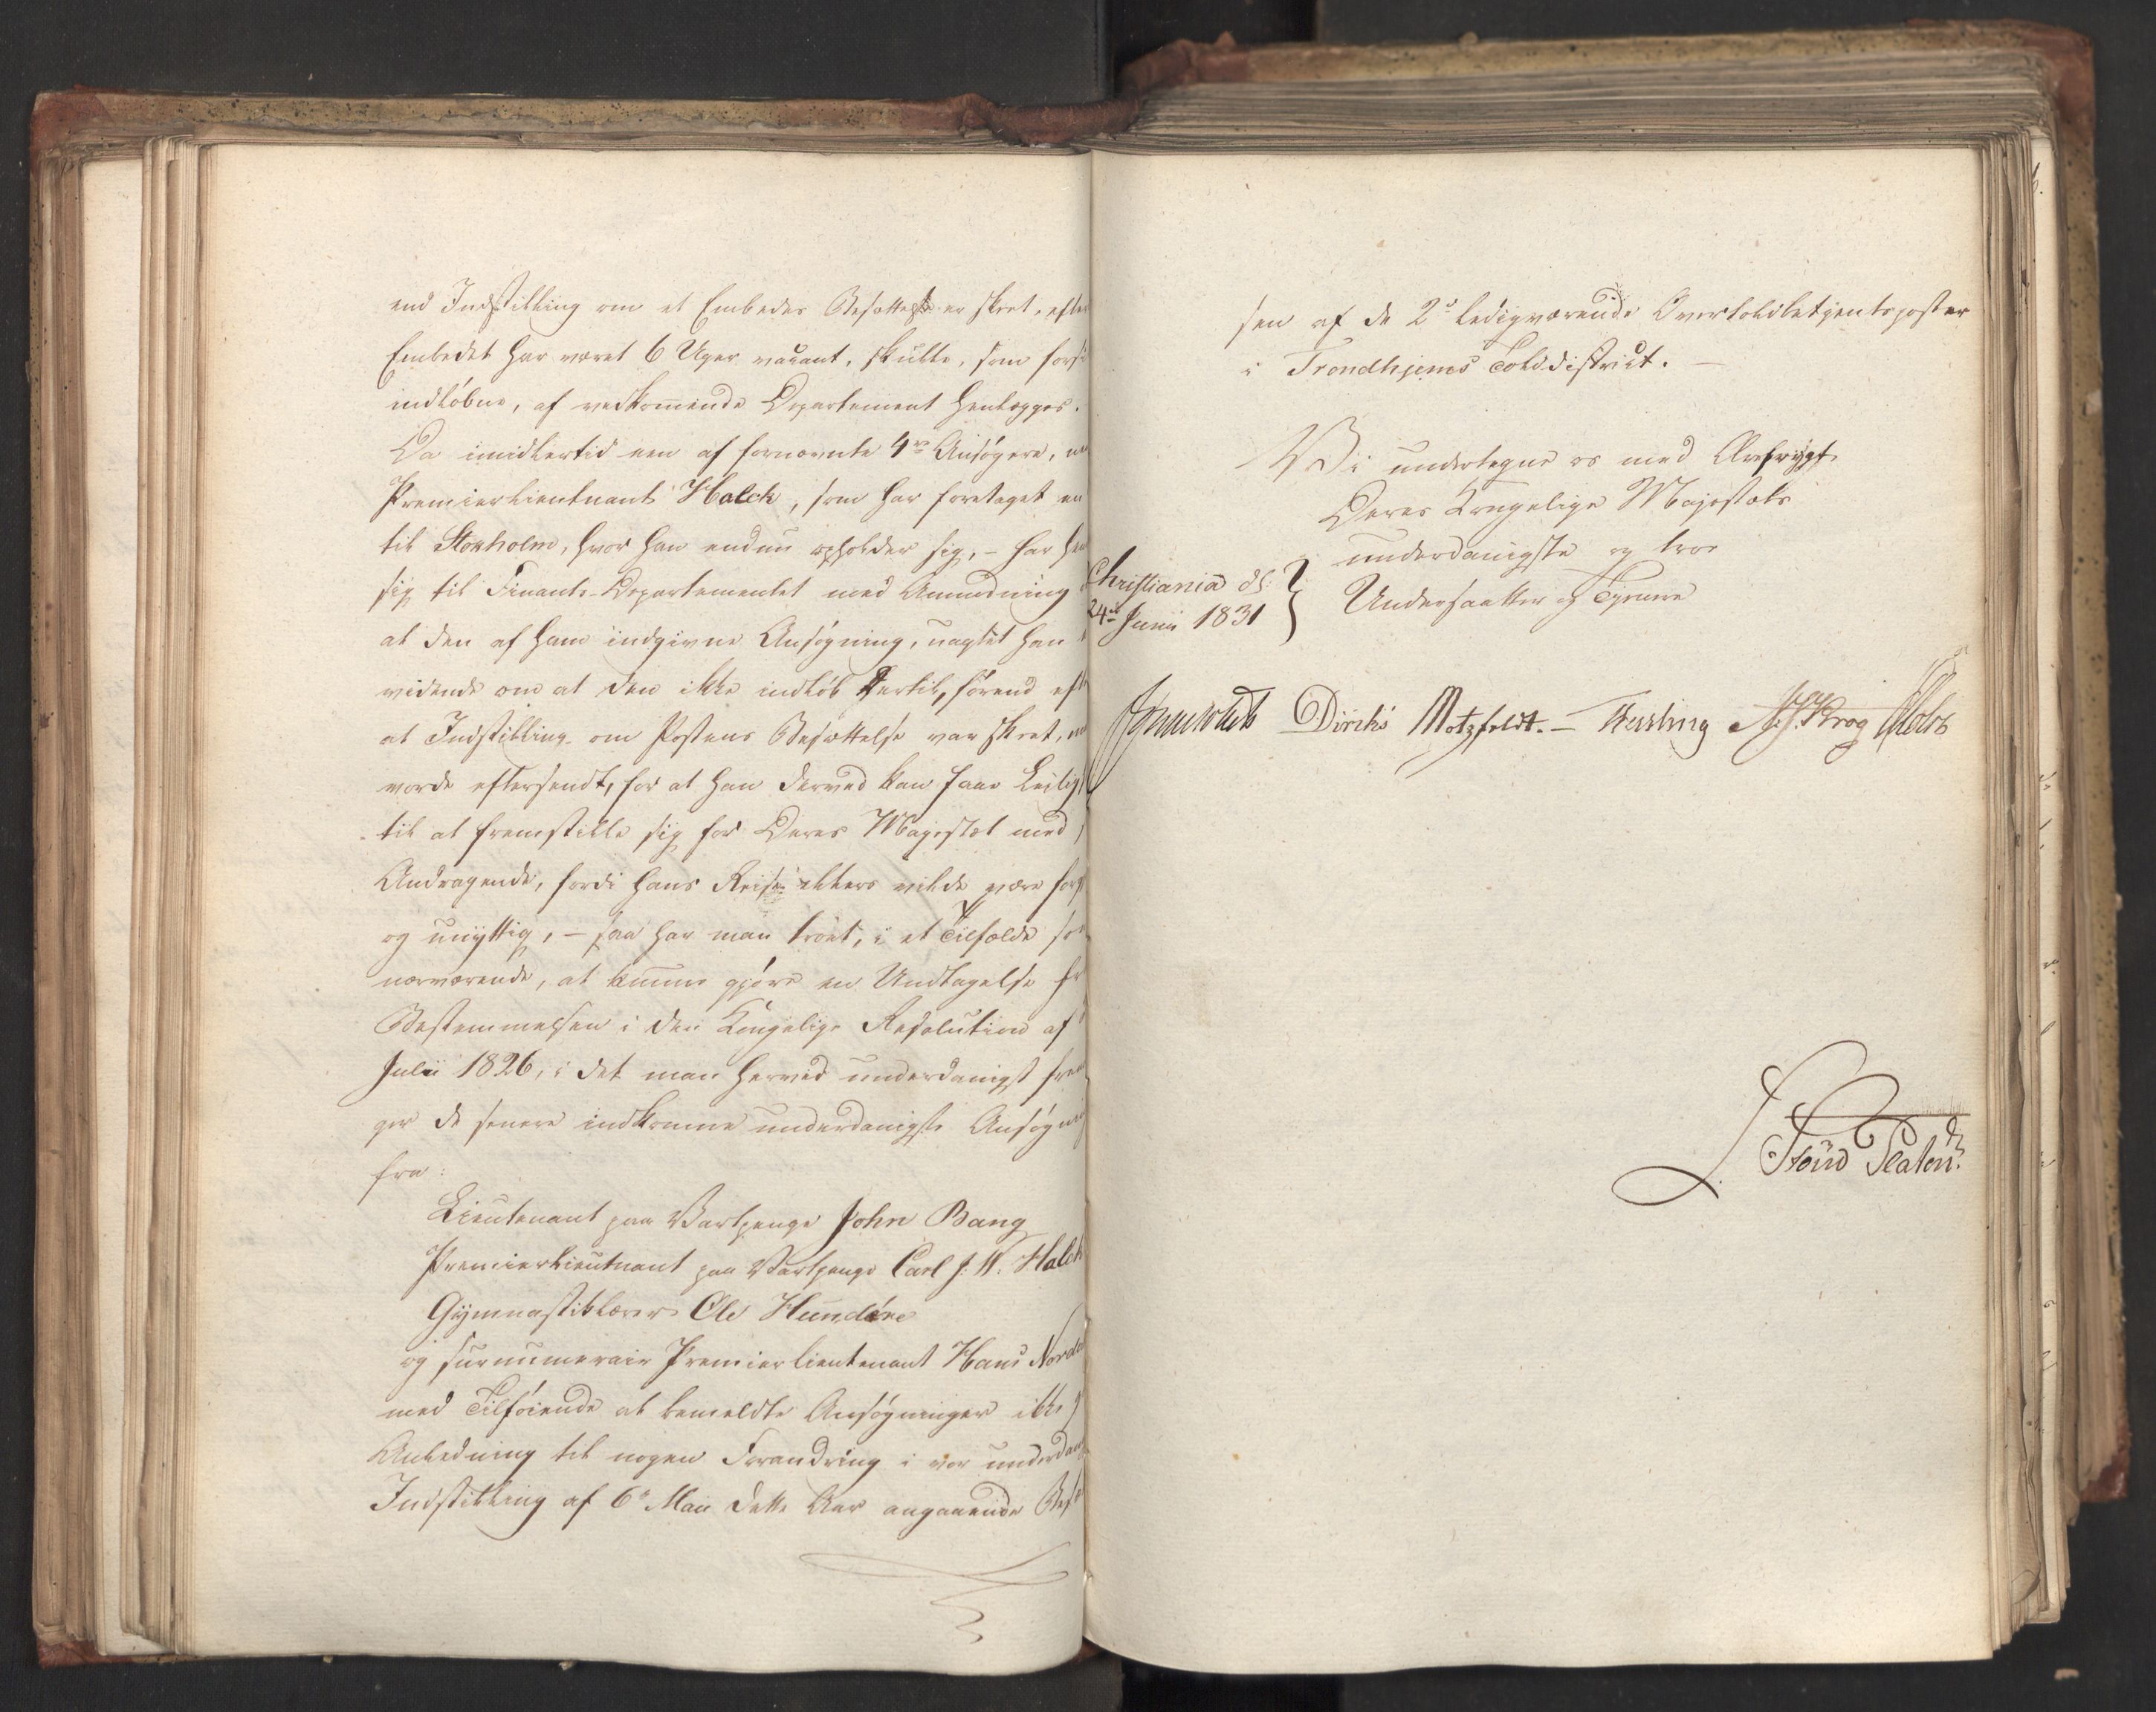 end Indstilling om et Embedes Besættelse er skeet, efter
Embedet har været 6 Uger vacant, skulle, som for
indløbne, af vedkommende Departement henlægges.
Da imidlertid een af fornævnte 4re Ansøgere,
Premierlieutnant Halck, som har foretaget en
til Stokholm, hvor han endnu opholder sig, – har
sig til Finants-Departementet med Anmodning
at den af ham indgivne Ansøgning, uagtet han
vidende om at den ikke indløb hertil, førend eft
at Indstilling om Postens Besættelse var skeet,
vorde eftersendt, for at han derved kan faae Leilig
til at fremstille sig for Deres Majestæt med
Andragende, fordi hans Reise ellers vilde være forg
og unyttig, – saa har man troet, i et Tilfælde som
nærværende, at kunne gjøre en Undtagelse fr
Bestemmelsen i den Kongelige Resolution af
Julii 1826, i det man herved underdanigst frem
ger de senere indkomne underdanigste Ansøgn
fra:
Lieutenant paa Vartpenge John Bang
Premierlieutnant paa Vartpenge Carl J. W. Halck
Gymnastiklærer Ole Hundére
og surnumerair Premierlieutenant Hans Nord
med Tilføiende at bemeldte Ansøgninger ikke g
Anledning til nogen Forandring i vor underdan
Indstilling af 6te Mai dette Aar angaaende Besæ
sen af de 2de ledigværende Overtoldbetjentsposter
i Trondhjems Tolddistrict. –
Vi undertegne os med Ærefrygt
Deres Kongelige Majestæts
underdanigste og troe
Undersaatter og Tjenere
Christiania d:
24de Junii 1831
Diriks Motzfeldt. – Fasting N. J. Krog
Platen